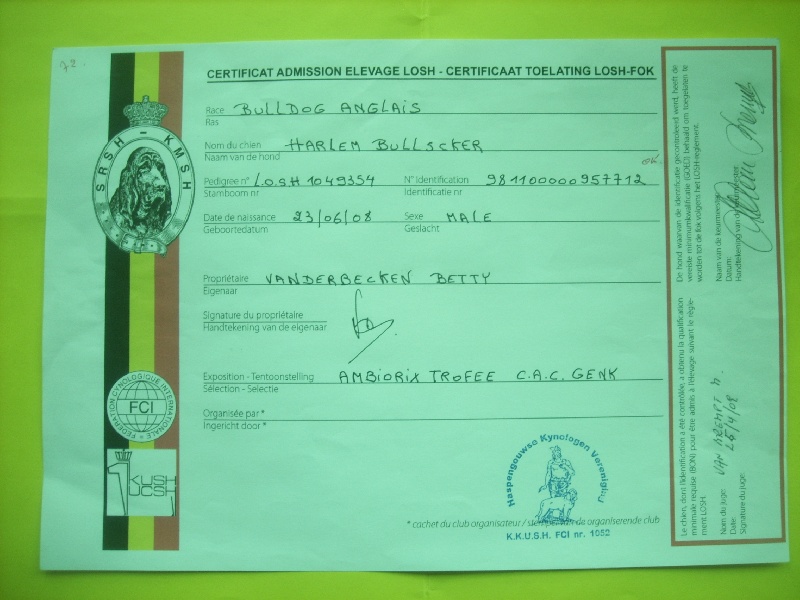 72.
CERTIFICAT ADMISSION ELEVAGE LOSH - CERTIFICAAT TOELATING LOSH-FOK
Race BULLDOG ANGLAIS
Ras
Nom du chien HARLEM BULLSCKER
Naam van de hond
ok.
Pedigree n° L.O.S.H 1049354 N° Identification 981100000957712
Stamboom nr Identificatie nr
Date de naissance 23/06/08 Sexe MALE
Geboortedatum Geslacht
Propriétaire VANDERBECKEN BETTY
Eigenaar
Signature du propriétaire
Handtekening van de eigenaar
Exposition - Tentoonstelling AMBIORIX TROFEE C.A.C. GENK
Sélection - Selectie
Organisée par *
Ingericht door *
* cachet du club organisateur / stempel van de organiserende club
Haspengouwse Kynologen Vereniging
K.K.U.S.H. FCI nr. 1052
SRSH - KMSH
FEDERATION CYNOLOGIQUE INTERNATIONALE
FCI
KUSH
UCSH
Le chien, dont l'identification a été contrôlée, a obtenu la qualification
minimale requise (BON) pour être admis à l'élevage suivant le règle-
ment LOSH.
Nom du juge:
Date:
Signature du juge:
De hond waarvan de identificatie gecontroleerd werd, heeft de
vereiste minimumkwalificatie (GOED) behaald om toegelaten te
worden tot de fok volgens het LOSH-reglement.
Naam van de keurmeester:
Datum:
Handtekening van de keurmeester: